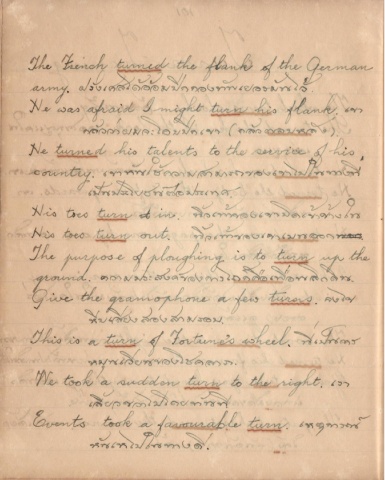 The French turned the flank of the German
army. ฝรั่งเศสได้อ้อมปีกกองทัพเยอรมันไว้.
He was afraid I might turn his flank. เขา
กลัวว่าฉันจะโอบปีกเขา
He turned his talents to the service of his
country. เขา
เป็นประโยชน์ต่อประเทศ.
His toes turn in. หัวแม่เท้าของเขา
His toes turn out. หัวแม่เท้าของเขา
The purpose of ploughing is to turn up the
ground. ความประสงค์ของการไถ
Give the gramophone a few turns.
หีบเสียงสองสามรอบ.
This is a turn of Fortune's wheel. นี่เป็นการ
หมุนเวียนของโชคลาภ.
We took a sudden turn to the right. เรา
เลี้ยวขวาโดยทันที
Events took a favourable turn. เหตุการณ์
หันเหไปในทางดี.